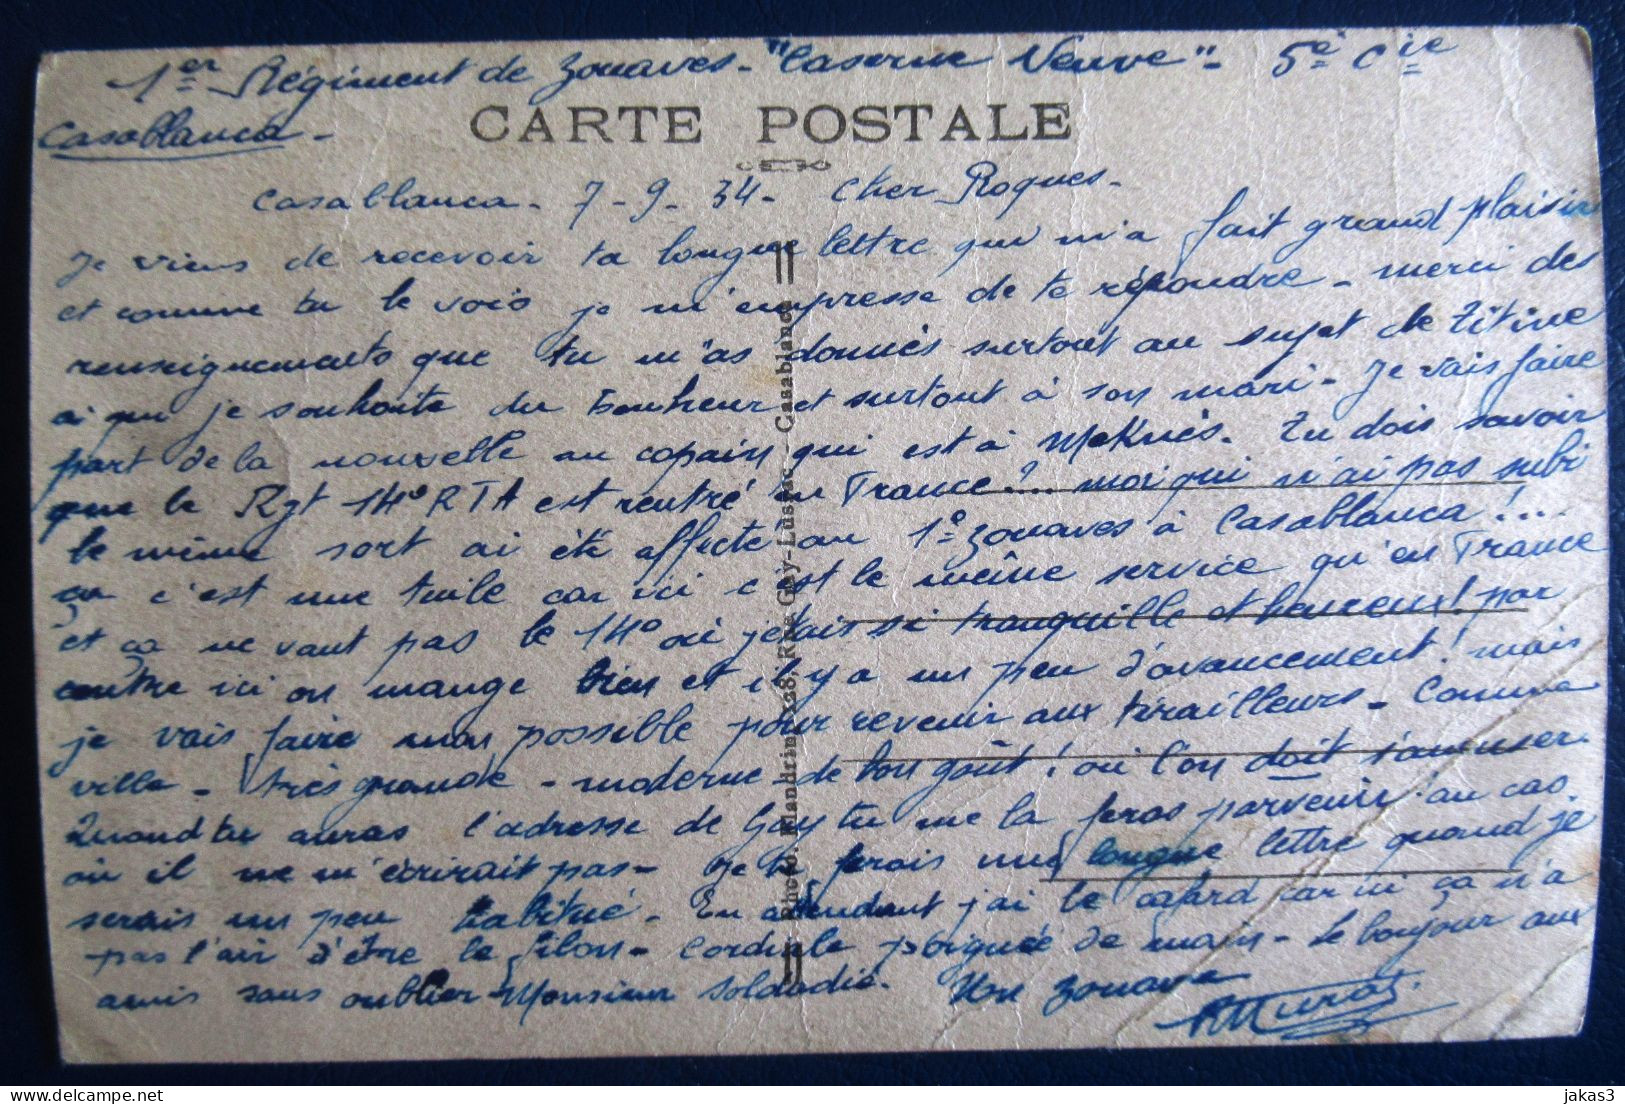 1er Régiment de Zouaves - "Caserne Neuve" - 5e Cie
Casablanca -
CARTE POSTALE
Casablanca - 7-9-34 - Cher Roques -
Je viens de recevoir ta longue lettre qui m'a fait grand plaisir
et comme tu le vois je m'empresse de te répondre - merci des
renseignements que tu m'as donnés surtout au sujet de Titine
à qui je souhaite du bonheur et surtout à son mari - Je vais faire
part de la nouvelle au copain qui est à Meknès. Tu dois savoir
que le Rgt 14e RTA est rentré en France?... moi qui n'ai pas subi
le même sort ai été affecté au 1e Zouaves à Casablanca!...
ça c'est une tuile car ici c'est le même service qu'en France
et ça ne vaut pas le 14e où j'étais si tranquille et heureux! par
contre ici on mange bien et il y a un peu d'avancement! mais
je vais faire mon possible pour revenir aux tirailleurs - Comme
ville - très grande - moderne de bon goût! où l'on doit s'amuser.
Quand tu auras l'adresse de Gay tu me la feras parvenir au cas
où il ne m'écrirait pas - Je te ferais une longue lettre quand je
serais un peu habitué - En attendant j'ai le cafard car ici ça n'a
pas l'air d'être le filon - Cordiale poignée de main - le bonjour aux
amis sans oublier Monsieur Soldadié. Un Zouave
Murat
Photo. Flandrin, 128, Rue Gay-Lussac - Casablanca
jakas3